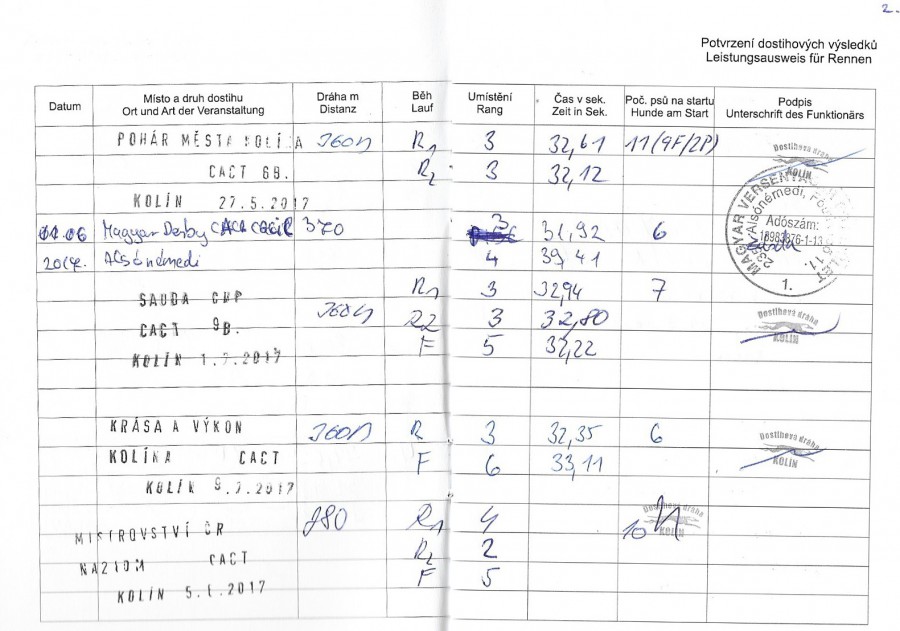 2.
Potvrzení dostihových výsledků
Leistungsausweis für Rennen
Datum
Místo a druh dostihu
Ort und Art der Veranstaltung
Dráha m
Distanz
Běh
Lauf
Umístění
Rang
Čas v sek.
Zeit in Sek.
Poč. psů na startu
Hunde am Start
Podpis
Unterschrift des Funktionärs
POHÁR MĚSTA KOLÍNA 360m R1 3 32,61 11(9F/2P)
CACT 6B. R2 3 32,12
KOLÍN 27.5.2017
Dostihová dráha
KOLÍN
01.06 Magyar Derby 370 3 31,92 6
2017. Alsónémedi 4 39,41
MAGYAR
Adószám:
18983876-1-13
1.
R1 3 32,94 7
SAUDA CUP
360m R2 3 32,80
CACT 9B.
F 5 32,22
KOLÍN 1.7.2017
Dostihová dráha
KOLÍN
KRÁSA A VÝKON 360m R 3 32,35 6
KOLÍNA CACT F 6 33,11
KOLÍN 9.7.2017
Dostihová dráha
KOLÍN
MISTROVSTVÍ ČR 280 R1 4 10
R2 2
NAZIOM CACT
F 5
KOLÍN
Dostihová dráha
KOLÍN